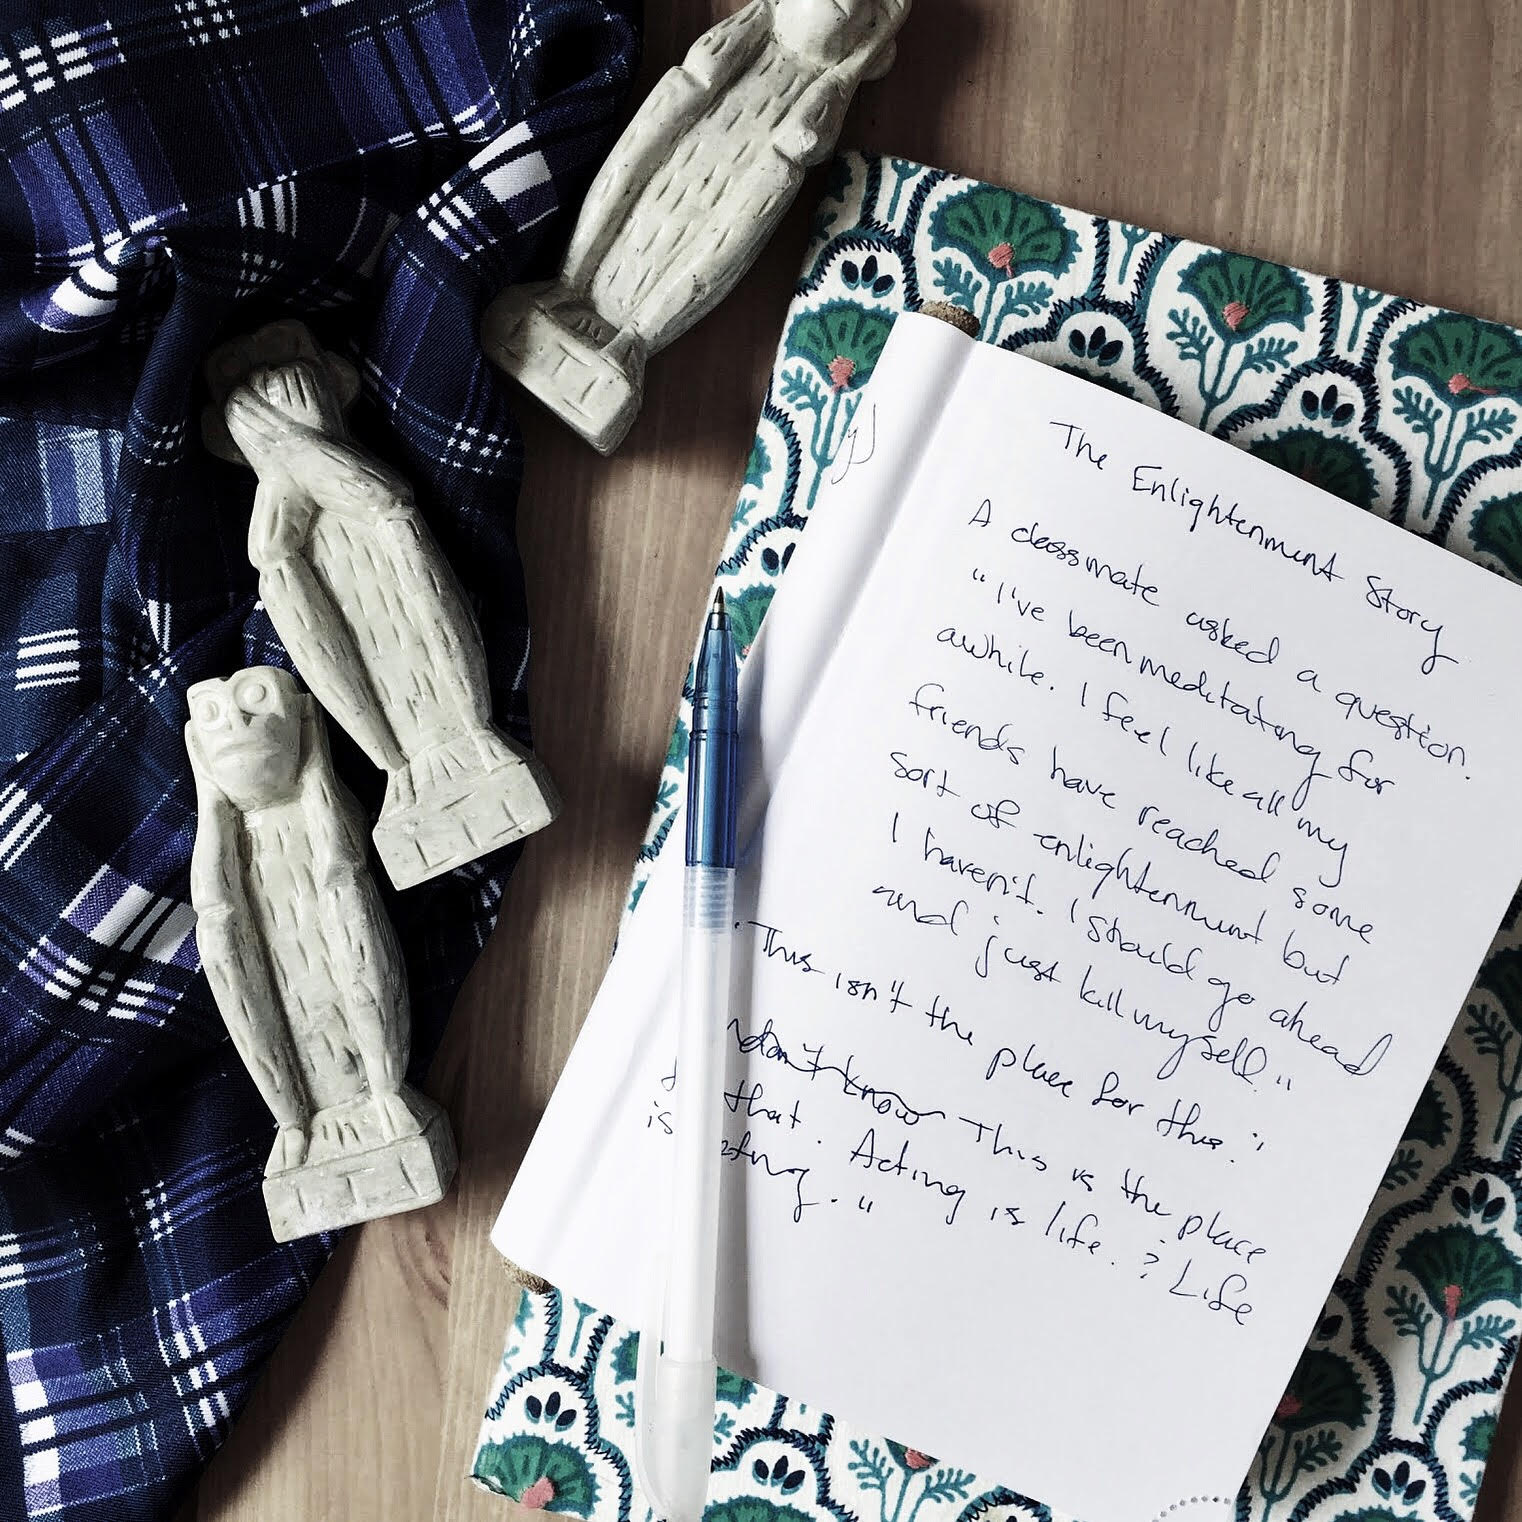 The Enlightenment Story
A classmate asked a question.
"I've been meditating for
awhile. I feel like all my
friends have reached some
sort of enlightenment but
I haven't. I should go ahead
and just kill myself."
"This isn't the place for this."
don't know This is the place
that. Acting is life. ? Life
is ."